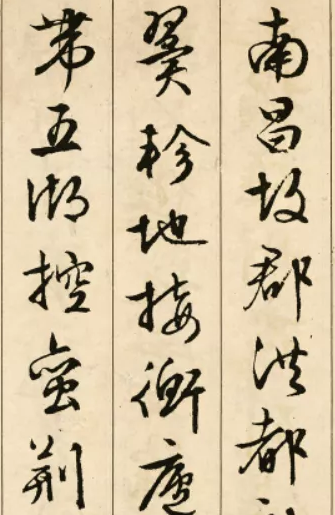 南昌故郡洪都
翼軫地接衡廬
帶五湖控蠻荊